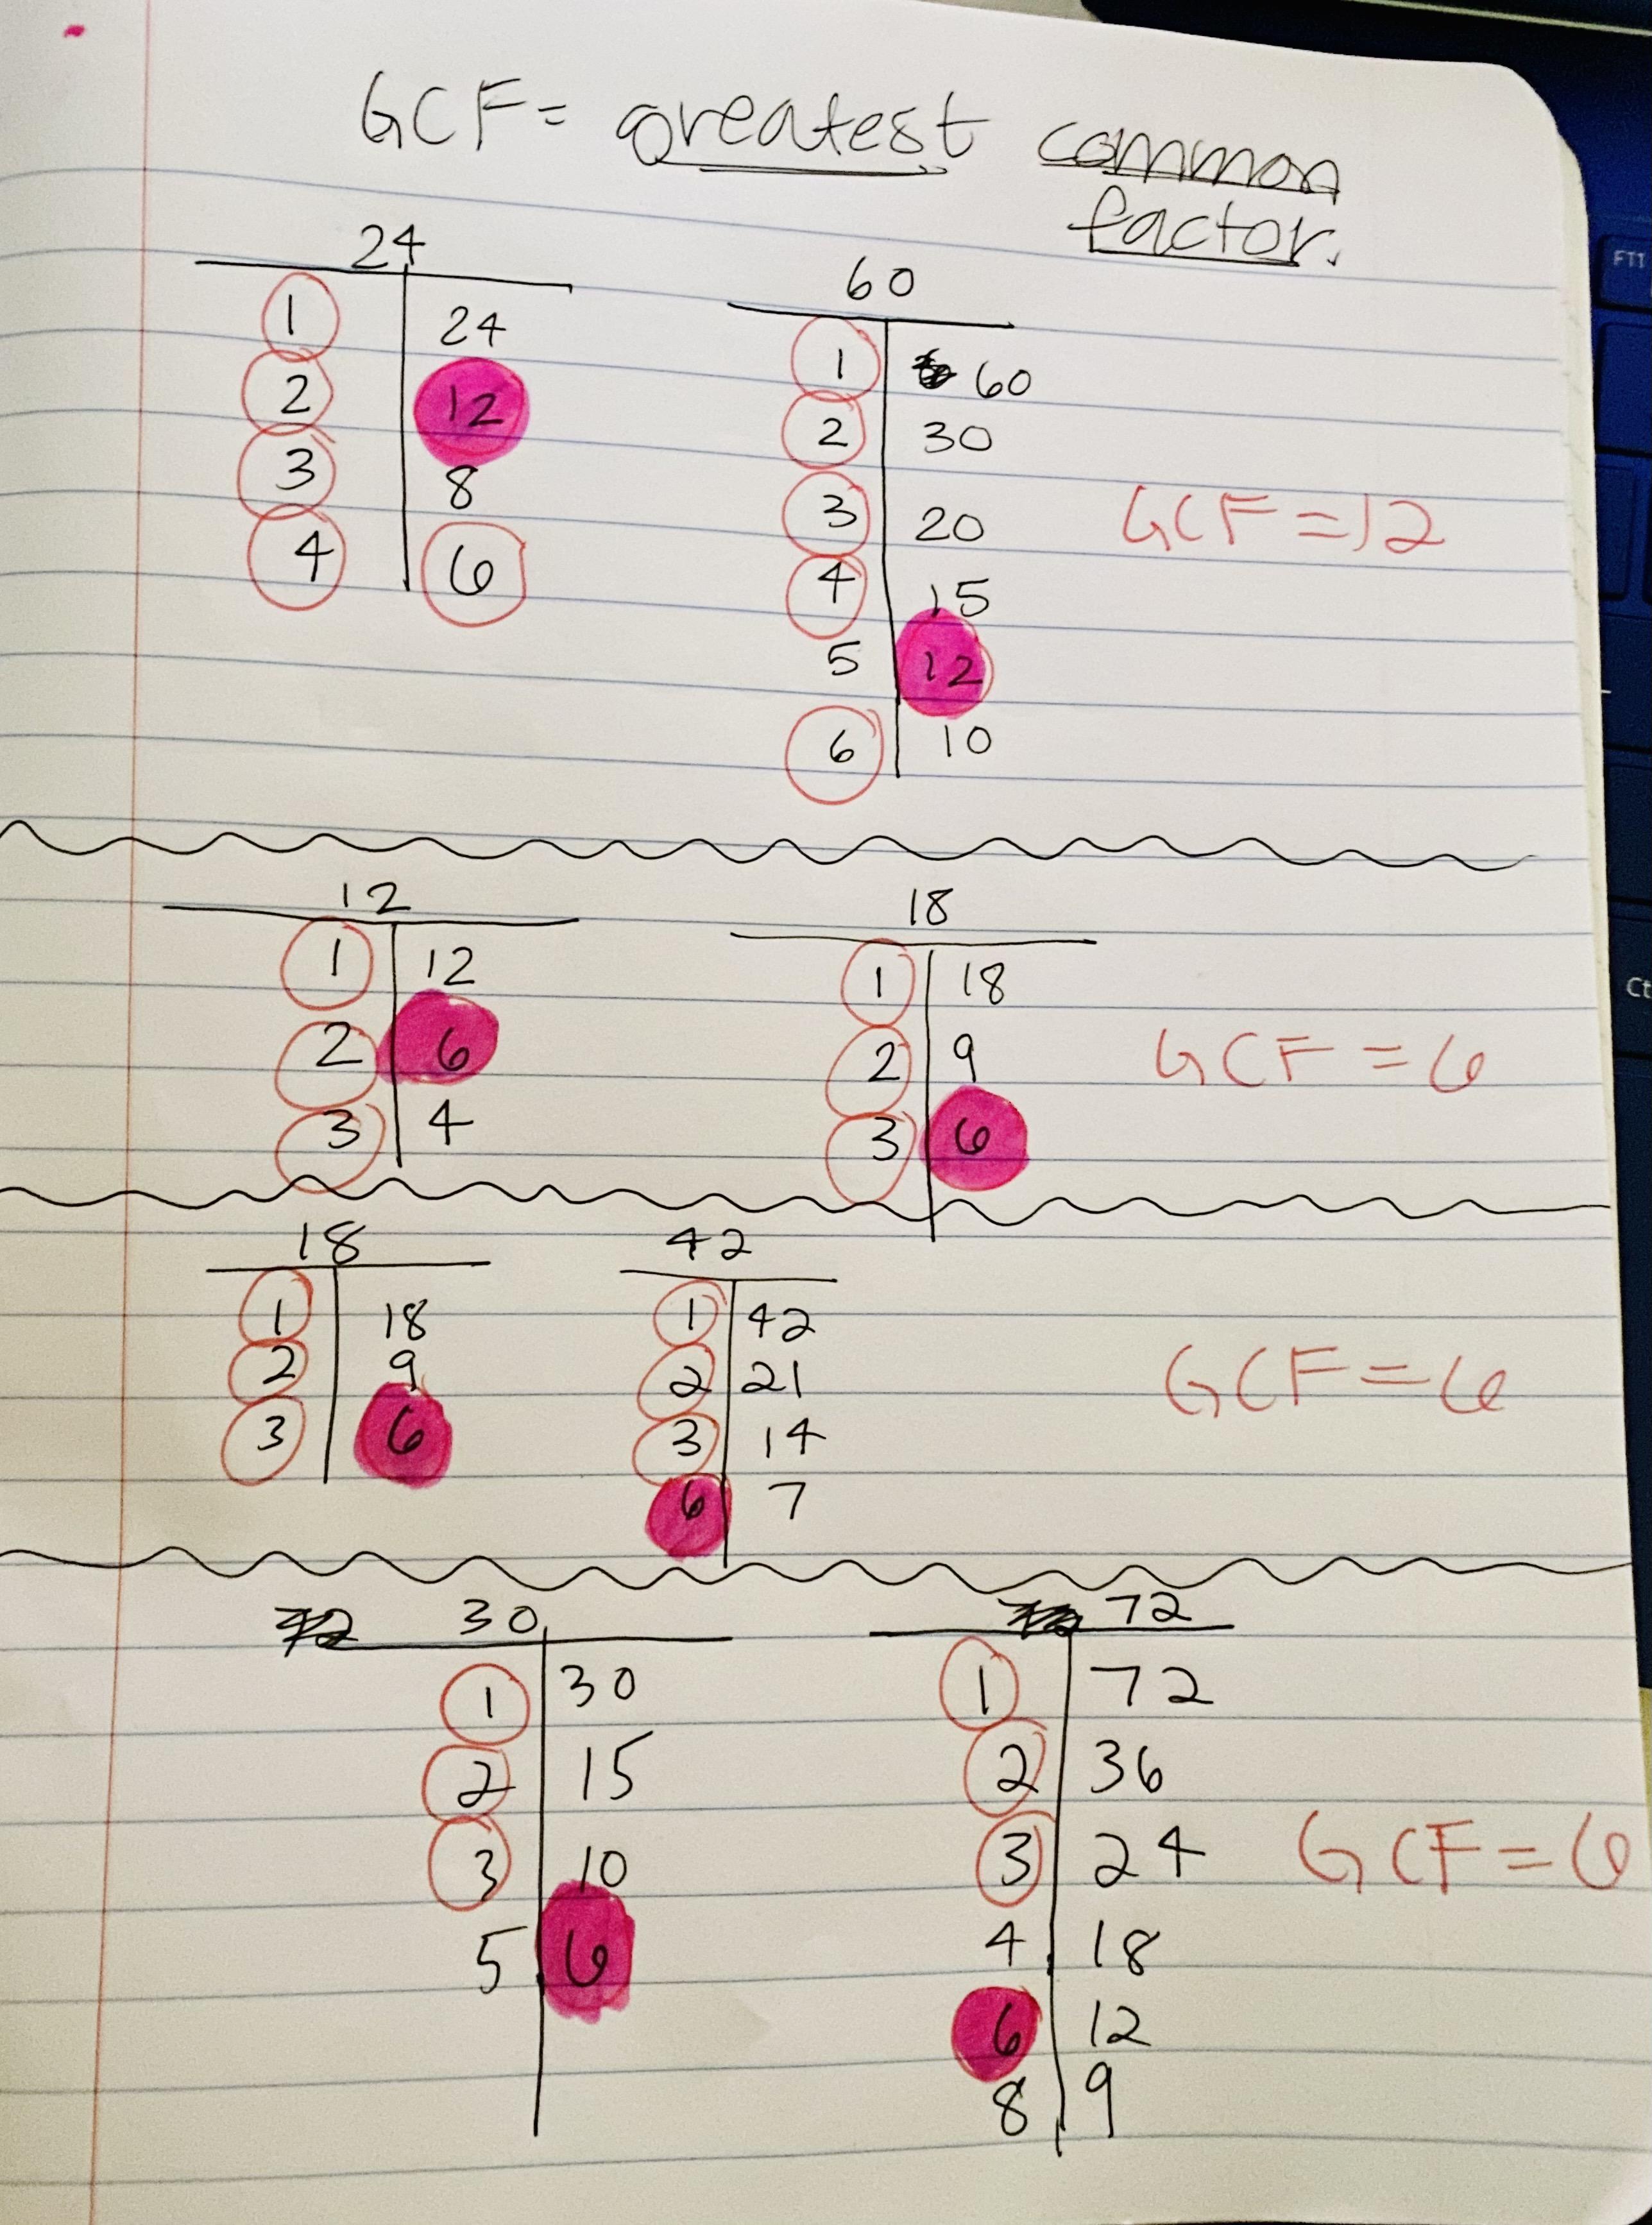 GCF = greatest common
factor.
24
60
1 24
2 12
3 8
4 6
1 60
2 30
3 20
4 15
5 12
6 10
GCF = 12
12
18
1 12
2 6
3 4
1 18
2 9
3 6
GCF = 6
18
42
1 18
2 9
3 6
1 42
2 21
3 14
6 7
GCF = 6
30
72
1 30
2 15
3 10
5 6
1 72
2 36
3 24
4 18
6 12
8 9
GCF = 6
F11
Ct